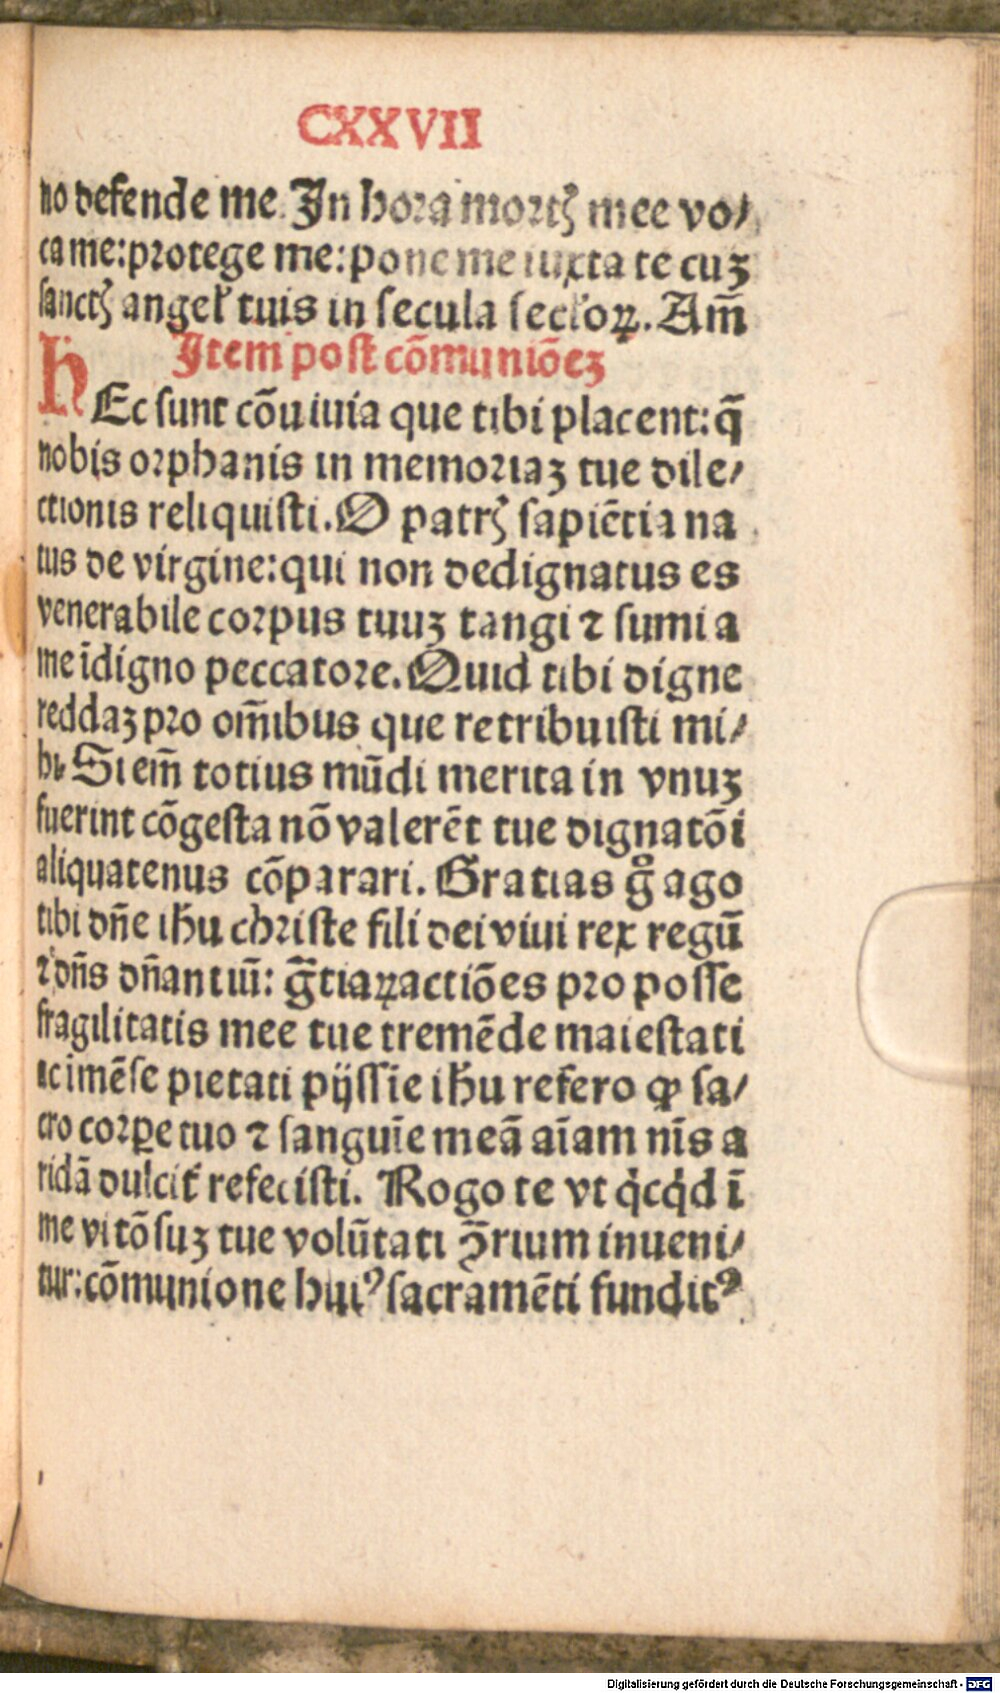 CXXVII
no defende me. In hora mortꝭ mee vo⸗
ca me: protege me: pone me iuxta te cuꝫ
sanctꝭ angeł tuis in secula sec̄loꝝ. Am̄
Item post cōmuniōeꝫ
hEc sunt cōuiuia que tibi placent: q̄
nobis orphanis in memoriaꝫ tue dile⸗
ctionis reliquisti. O patrꝭ sapiētia na
tus de virgine: qui non dedignatus es
venerabile corpus tuuꝫ tangi ⁊ sumi a
me īdigno peccatore. Quid tibi digne
reddaꝫ pro om̄ibus que retribuisti mi⸗
hi. Si em̄ totius mūdi merita in vnuꝫ
fuerint cōgesta nō valerēt tue dignatōi
aliquatenus cōparari. Gratias gͦ ago
tibi dn̄e ihu christe fili dei viui rex regū
⁊ dn̄s dn̄antiū: gr̄tiaꝝ actiōes pro posse
fragilitatis mee tue tremēde maiestati
ac imēse pietati pijssīe ihu refero ꝙ sa⸗
cro corꝑe tuo ⁊ sanguīe meā aīam nīs a
ridā dulcit̄ refecisti. Rogo te vt qͥcqͥd ī
me vitōsuꝫ tue volūtati ↄ̄rium inueni⸗
tur: cōmunione huiꝰ sacramēti funditꝰ
Digitalisierung gefördert durch die Deutsche Forschungsgemeinschaft - DFG